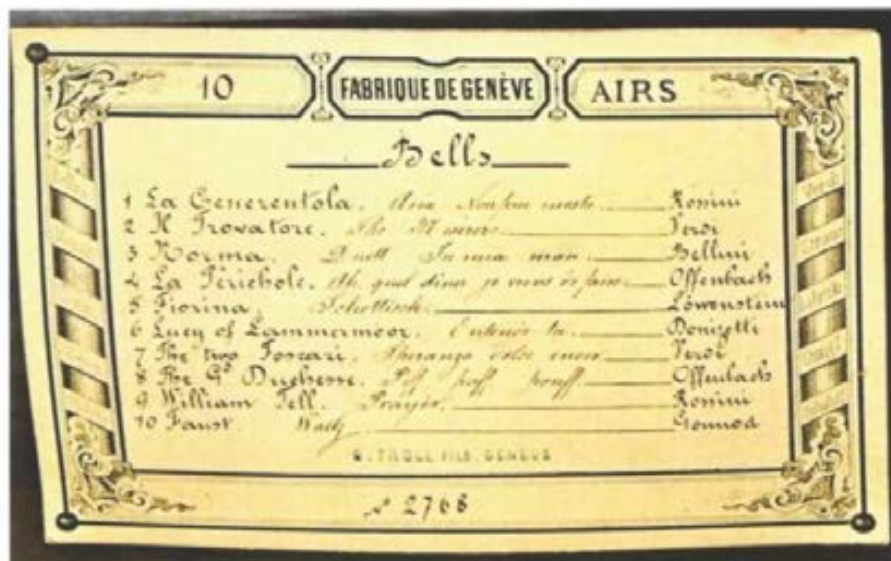 10 FABRIQUE DE GENÈVE AIRS
Bells
1 La Cenerentola. Aria Rossini
2 Il Trovatore. The Miserere Verdi
3 Norma. Duett In mia man Bellini
4 La Périchole. Ah, quel diner je viens de faire Offenbach
5 Fiorina. Schottisch Löwenstein
6 Lucy of Lammermoor. Donizetti
7 The two Foscari. Verdi
8 The Gd Duchesse. Piff paff pouff Offenbach
9 William Tell. Prayer. Rossini
10 Faust Waltz Gounod
B. TROLL FILS. GENEVE
2768